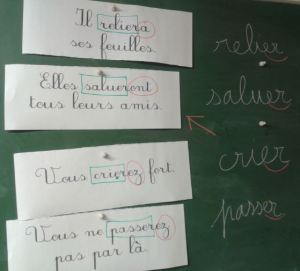 Il reliera
ses feuilles.
relier
Elles salueront
tous leurs amis.
saluer
Vous crierez fort.
crier
Vous ne passerez
pas par là.
passer